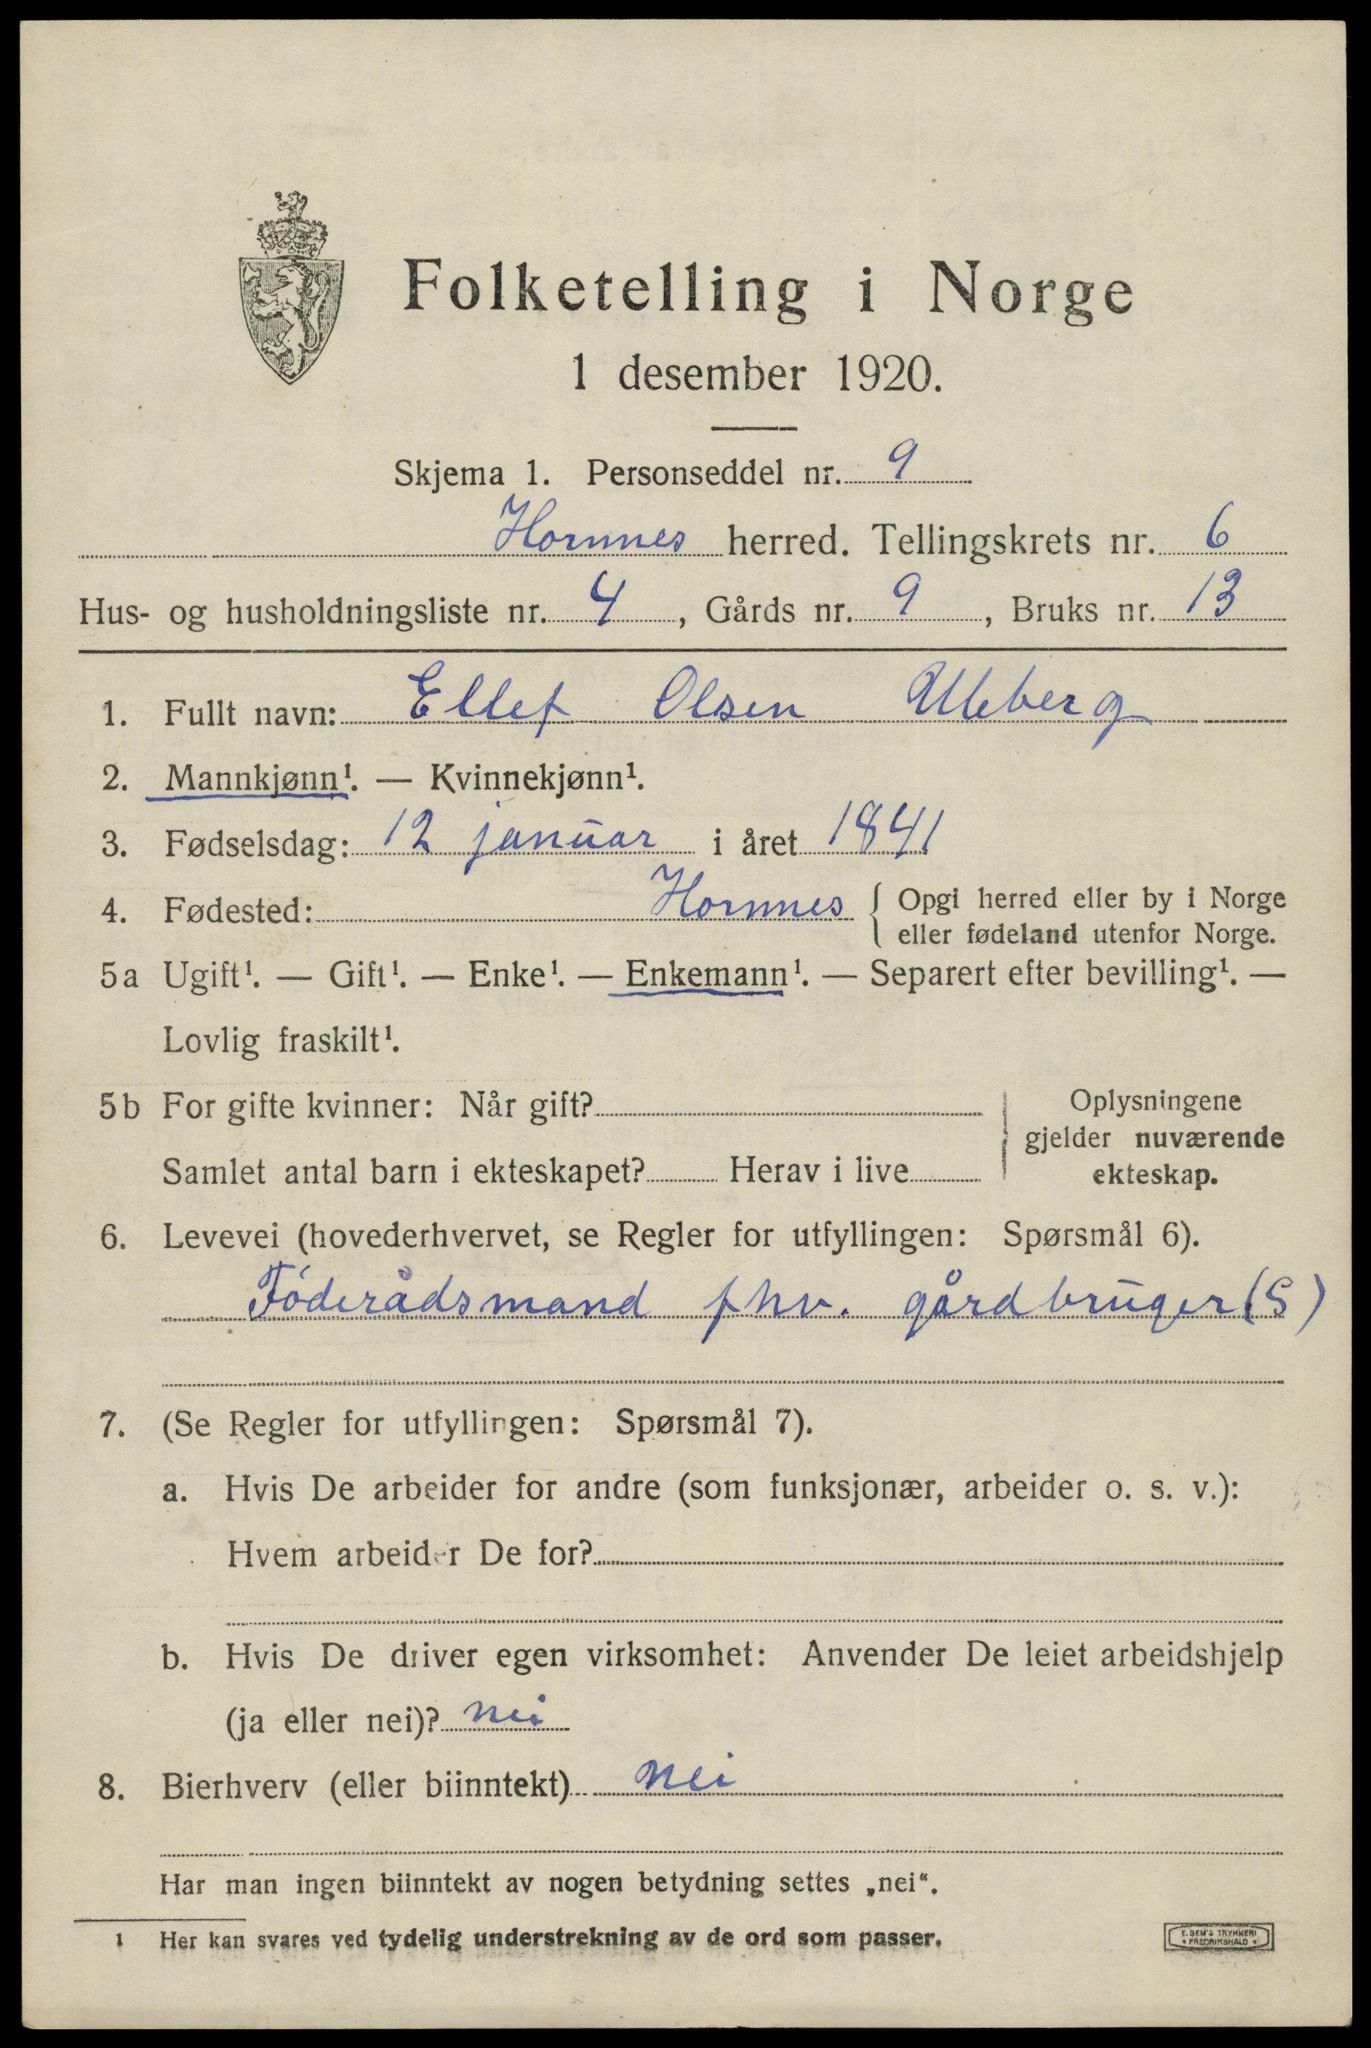 Folketelling i Norge
1 desember 1920.
Skjema 1. Personseddel nr. 9
Hornnes herred. Tellingskrets nr. 6
Hus- og husholdningsliste nr. 4, Gårds nr. 9, Bruks nr. 13
1. Fullt navn: Ellef Olsen Uleberg
2. Mannkjønn¹. — Kvinnekjønn¹.
3. Fødselsdag: 12 januar i året 1841
4. Fødested: Hornnes { Opgi herred eller by i Norge
eller fødeland utenfor Norge.
5a Ugift¹. — Gift¹. — Enke¹. — Enkemann¹. — Separert efter bevilling¹. —
Lovlig fraskilt¹.
5b For gifte kvinner: Når gift?
Samlet antal barn i ekteskapet? Herav i live
Oplysningene
gjelder nuværende
ekteskap.
6. Levevei (hovederhvervet, se Regler for utfyllingen: Spørsmål 6).
Föderådsmand fhv. gårdbruger (S)
7. (Se Regler for utfyllingen: Spørsmål 7).
a. Hvis De arbeider for andre (som funksjonær, arbeider o. s. v.):
Hvem arbeider De for?
b. Hvis De driver egen virksomhet: Anvender De leiet arbeidshjelp
(ja eller nei)? nei
8. Bierhverv (eller biinntekt) nei
Har man ingen biinntekt av nogen betydning settes „nei“.
1 Her kan svares ved tydelig understrekning av de ord som passer.
E. SEM'S TRYKKERI
FREDRIKSHALD